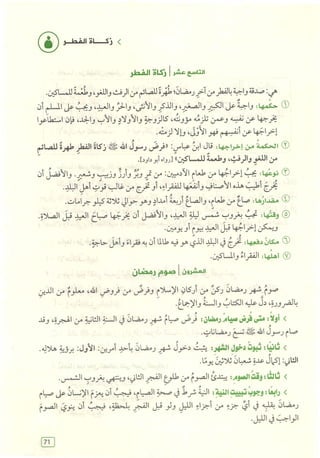 زكـــاة الفطــر
التاسع عشر | زكاة الفطر
هي: صدقة واجبة بالفطر من آخر رمضان؛ طُهرة للصائم من الرفث واللغو، وطُعمة للمساكين.
① حكمها: واجبة على الكبير والصغير، والذكر والأنثى، والحر والعبد، ويجب على المسلم أن
يخرجها عن نفسه وعمن تلزمه مؤونته، كالزوجة والأولاد والأب والجد، فإن استطاعوا
إخراجها عن أنفسهم فهو الأولى، وإلا لزمته.
② الحكمة من إخراجها: قال ابن عباس: «فرض رسول الله ﷺ زكاة الفطر طهرة للصائم
من اللغو والرفث، وطعمة للمساكين» [رواه أبو داود].
③ نوعها: يجب إخراجها من طعام الآدميين: من تمر وبر وأرز وزبيب وشعير. والأفضل أن
يخرج أطيب هذه الأصناف وأنفعها للفقراء، أو تخرج من غالب قوت أهل البلد.
④ مقدارها: صاع من طعام، والصاع أربعة أمداد وهو حوالي ثلاثة كيلو جرامات.
⑤ وقتها: تجب بغروب شمس ليلة العيد، والأفضل أن يخرجها صباح العيد قبل الصلاة.
ويمكن إخراجها قبل العيد بيوم أو يومين.
⑥ مكان دفعها: تخرج في البلد الذي هو فيه طالما أن به فقراء وأهل حاجة.
⑦ أهلها: الفقراء والمساكين.
العشرون | صوم رمضان
صوم شهر رمضان ركن من أركان الإسلام وفرض من فروض الله، معلوم من الدين
بالضرورة، دل عليه الكتاب والسنة والإجماع.
أولاً: متى فرض صيام رمضان: فرض صيام شهر رمضان في السنة الثانية من الهجرة، وقد
صام رسول الله ﷺ تسع رمضانات.
ثانياً: ثبوت دخول الشهر: يثبت دخول شهر رمضان بأحد أمرين: الأول: برؤية هلاله.
الثاني: إكمال عدة شعبان ثلاثين يوماً.
ثالثاً: وقت الصوم: يبتدئ الصوم من طلوع الفجر الثاني، وينتهي بغروب الشمس.
رابعاً: وجوب تبييت النية: النية شرط في صحة الصيام، فيجب أن يعزم الإنسان على صيام
رمضان بقلبه في أي جزء من أجزاء الليل ولو قبل الفجر بلحظة، فيجب أن ينوي الصوم
الواجب في الليل.
71